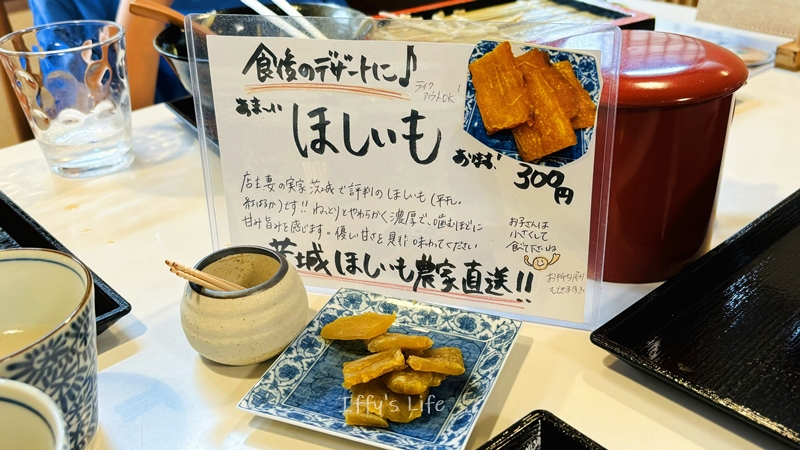 食後のデザートに♪
テイク
アウトOK!
あま〜い
ほしいも
あります!
300円
店主妻の実家茨城で評判のほしいも(平干し
紅はるか)です!! ねっとりとやわらかく濃厚で、噛むほどに
甘み旨みを感じます。優しい甘さを是非味わてください
お子さんは
小さくして
食べて下さいね
茨城ほしいも農家直送!!
お持ち帰り
もできます♪
Effy's Life